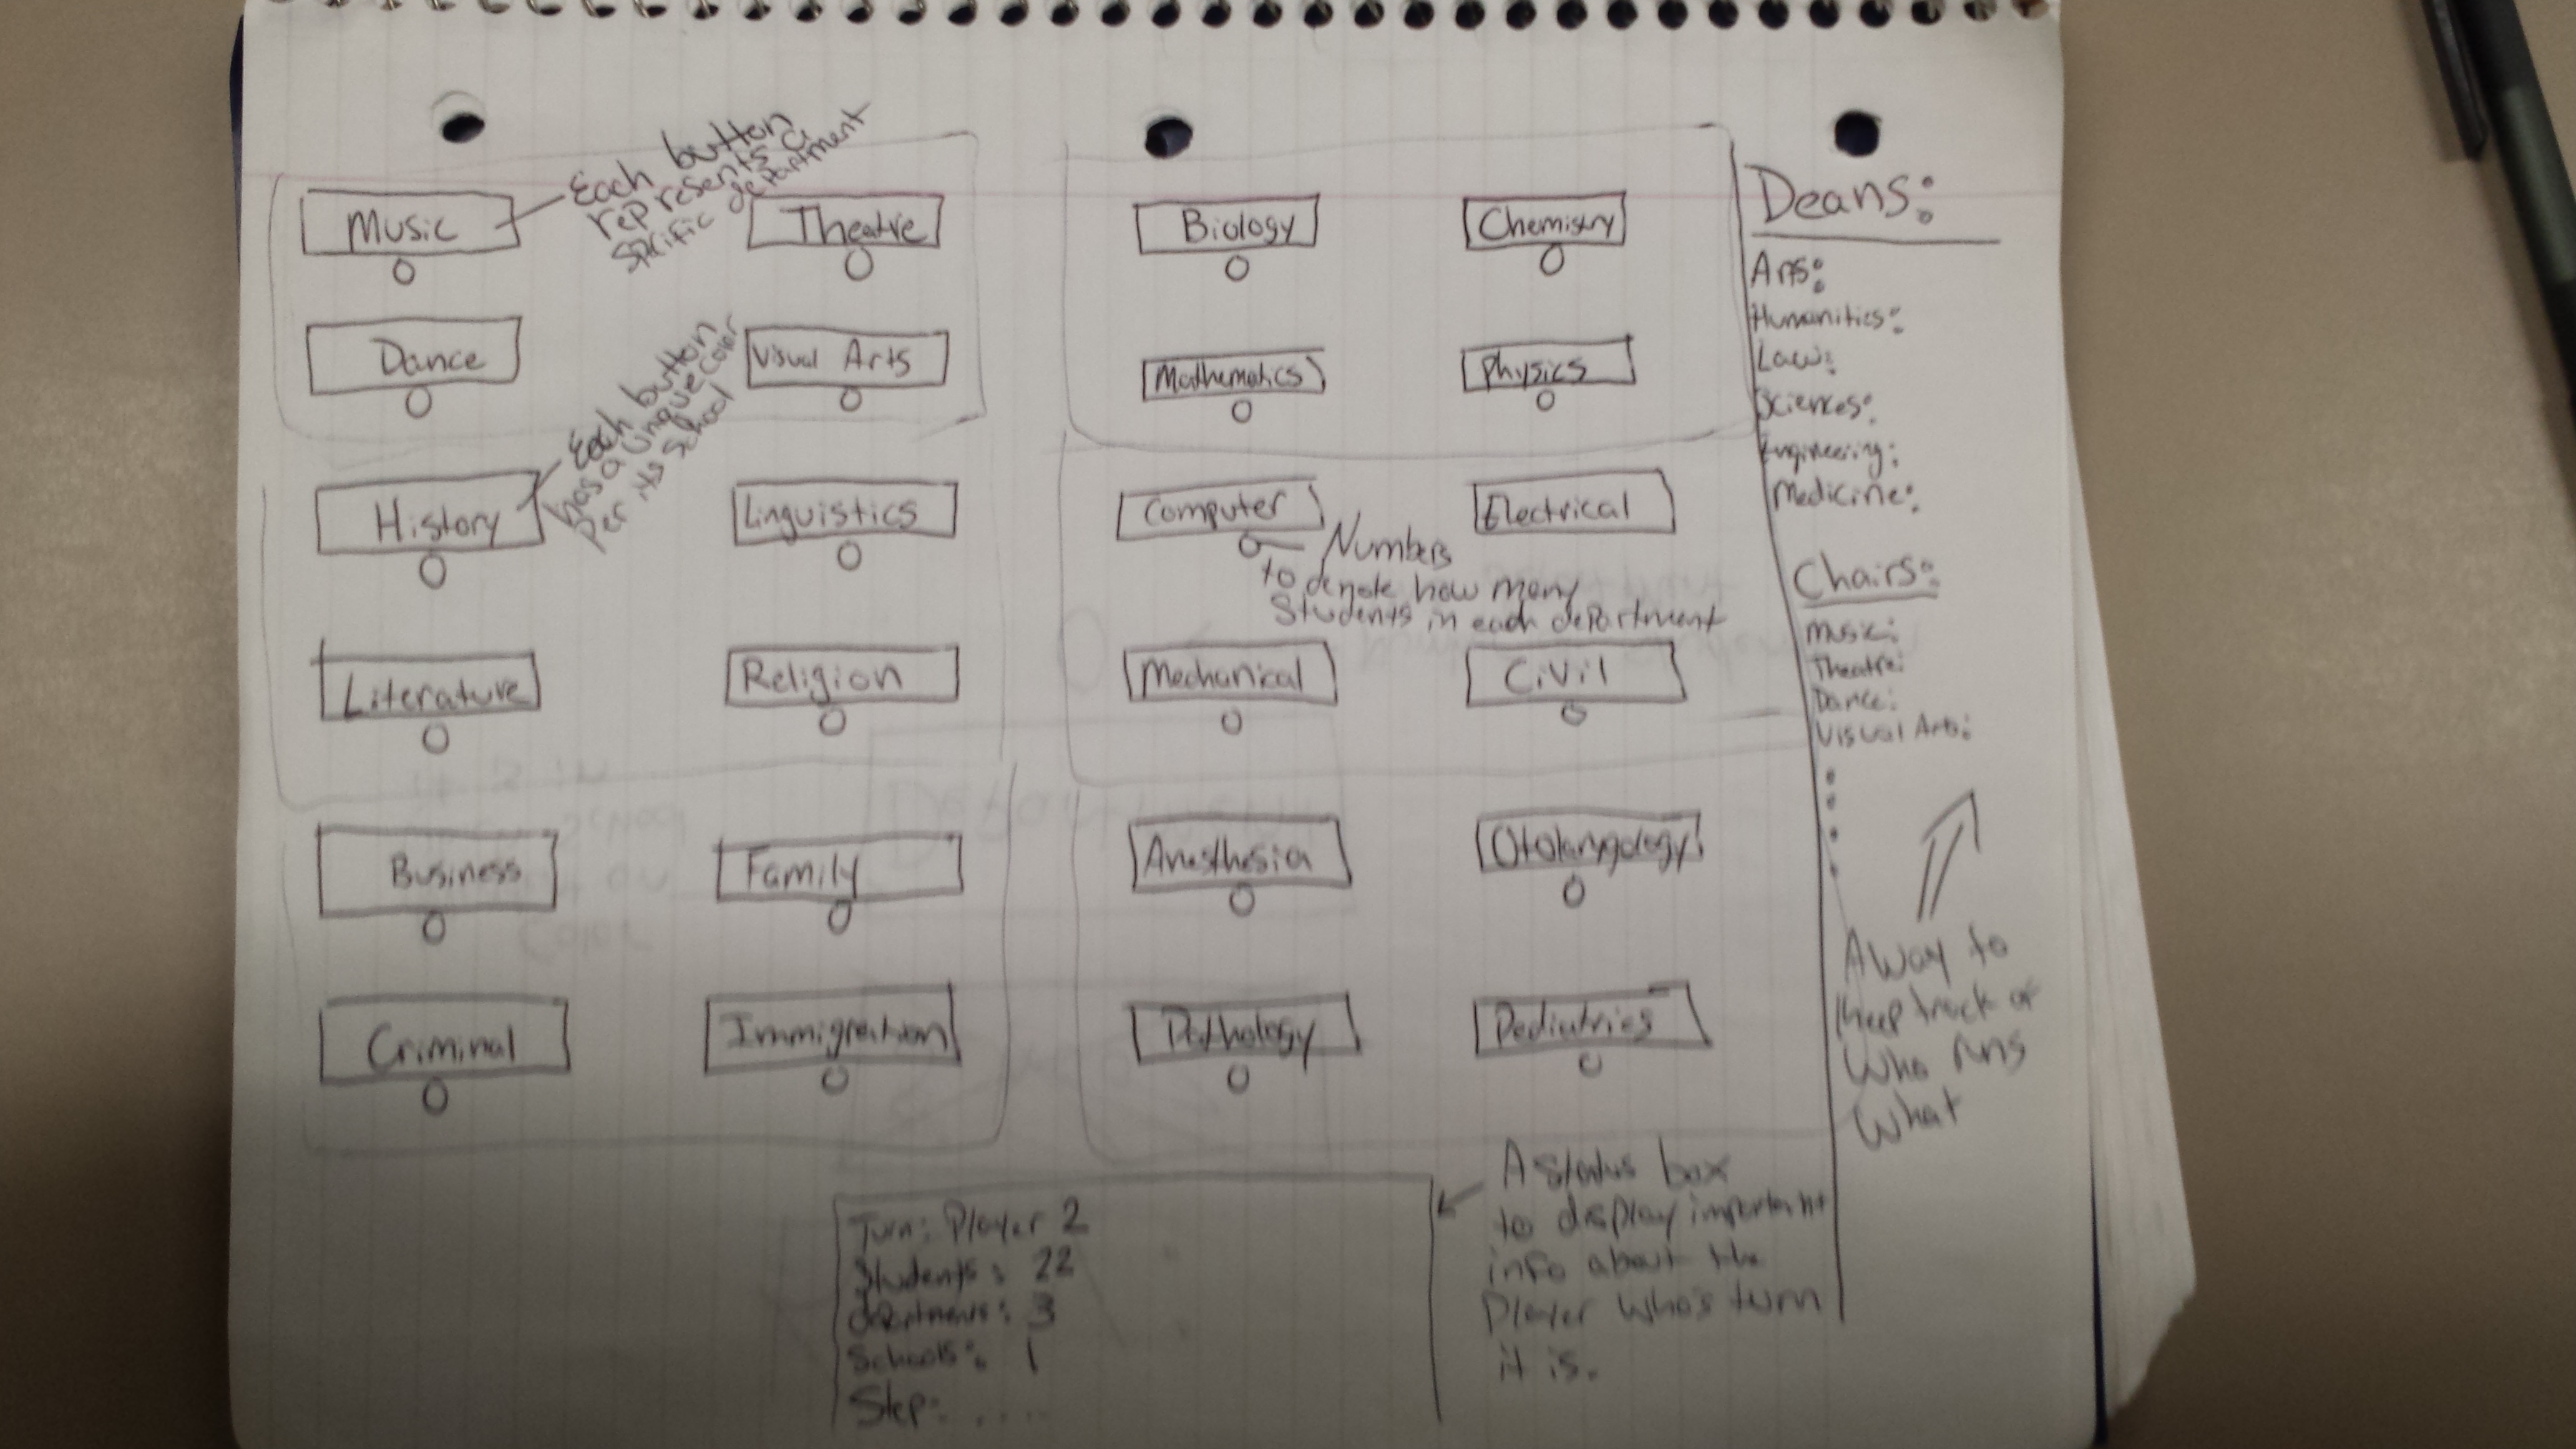 Music
Each button
represents a
spcific department
Theatre
Dance
Visual Arts
History
Each button
has a unique color
per its school
Linguistics
Literature
Religion
Business
Family
Criminal
Immigration
Biology
Chemistry
Mathematics
Physics
Computer
Electrical
Numbers
to denote how many
Students in each department
Mechanical
Civil
Anesthesia
Otolaryngology
Pathology
Pediatrics
Deans:
Arts:
Humanities:
Law:
Sciences:
Engineering:
Medicine:
Chairs:
Music:
Theatre:
Dance:
Visual Arts:
A way to
Keep track of
Who runs
What
Turn: Player 2
Students: 22
departments: 3
Schools: 1
Step: ....
A Status box
to display important
info about the
Player who's turn
it is.